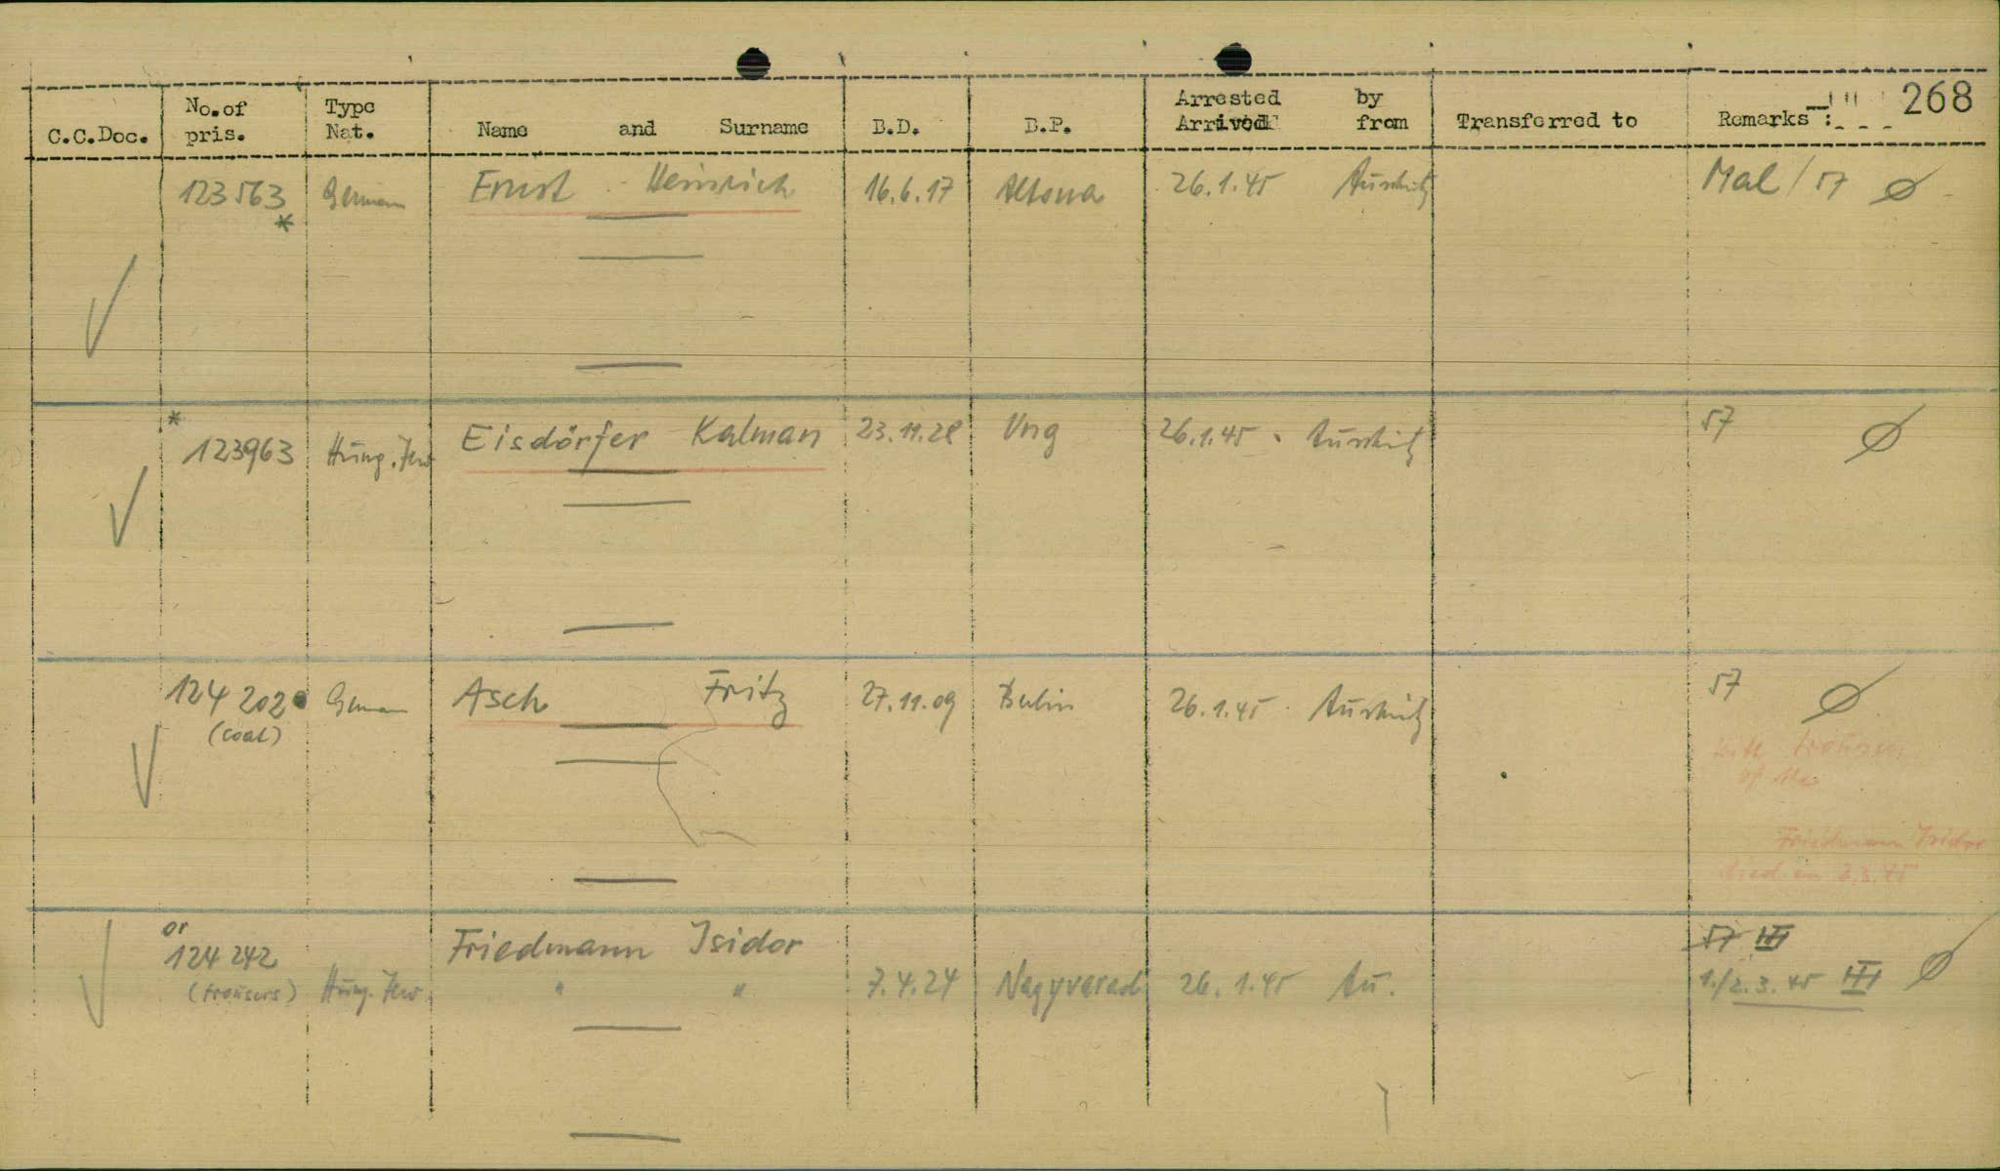 268
C.C.Doc. No.of pris. Type Nat. Name and Surname B.D. B.P. Arrested by Arrived from Transferred to Remarks :
123563 German Ernst Heinrich 16.6.17 Altona 26.1.45 Auschwitz Mal / 57 ø
*
*
123963 Hung. Jew Eisdörfer Kalman 23.11.28 Ung 26.1.45 Auschwitz 57 ø
124 202 German Asch Fritz 27.11.09 Berlin 26.1.45 Auschwitz 57 ø
(coat)
with trousers
of the
Friedmann Isidor
died on 2.3.45
or
124 242 Friedmann Isidor 57 III
(trousers) Hung. Jew " " 7.4.24 Nagyvarad 26.1.45 Au. 1./2.3.45 III ø